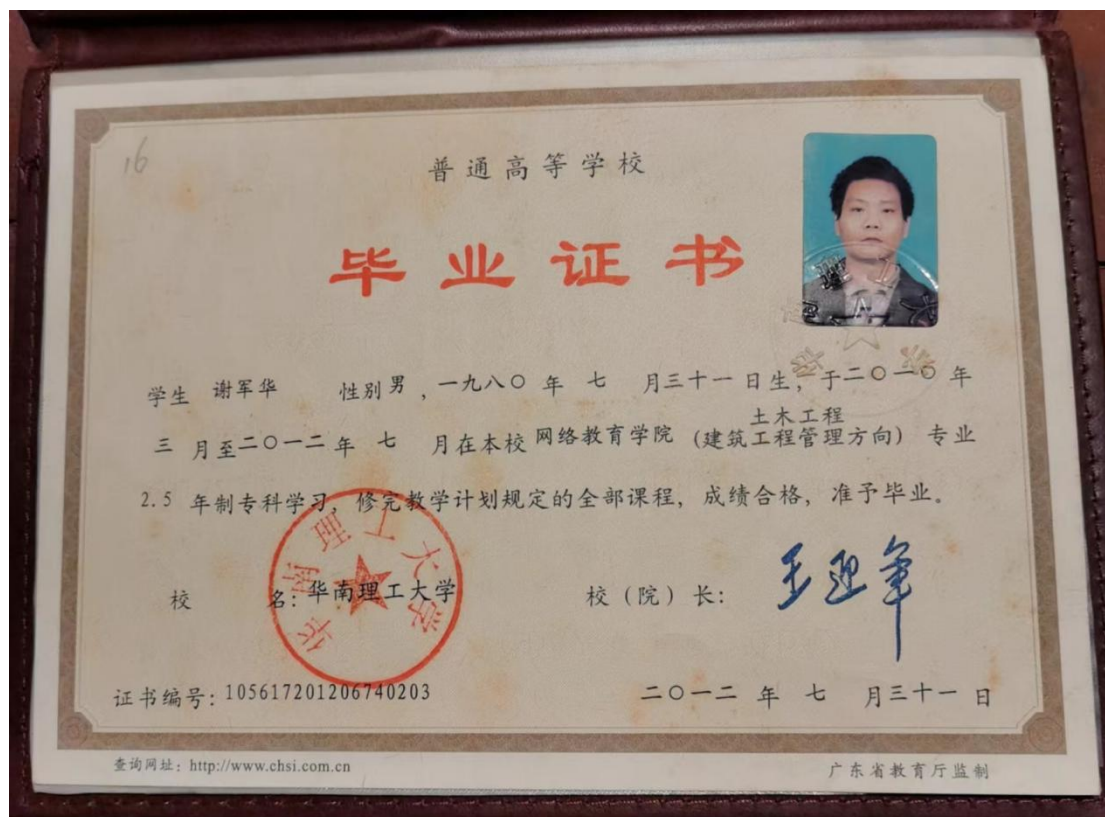 16
普通高等学校
毕业证书
学生 谢军华 性别 男 , 一九八〇 年 七 月三十一 日生, 于二〇一〇 年
土木工程
三 月至二〇一二 年 七 月在本校 网络教育学院 (建筑工程管理方向) 专业
2.5 年制专科学习, 修完教学计划规定的全部课程, 成绩合格, 准予毕业。
华南理工大学
校 名: 华南理工大学 校(院)长: 王迎军
证书编号: 105617201206740203 二〇一二 年 七 月三十一 日
查询网址: http://www.chsi.com.cn 广东省教育厅监制